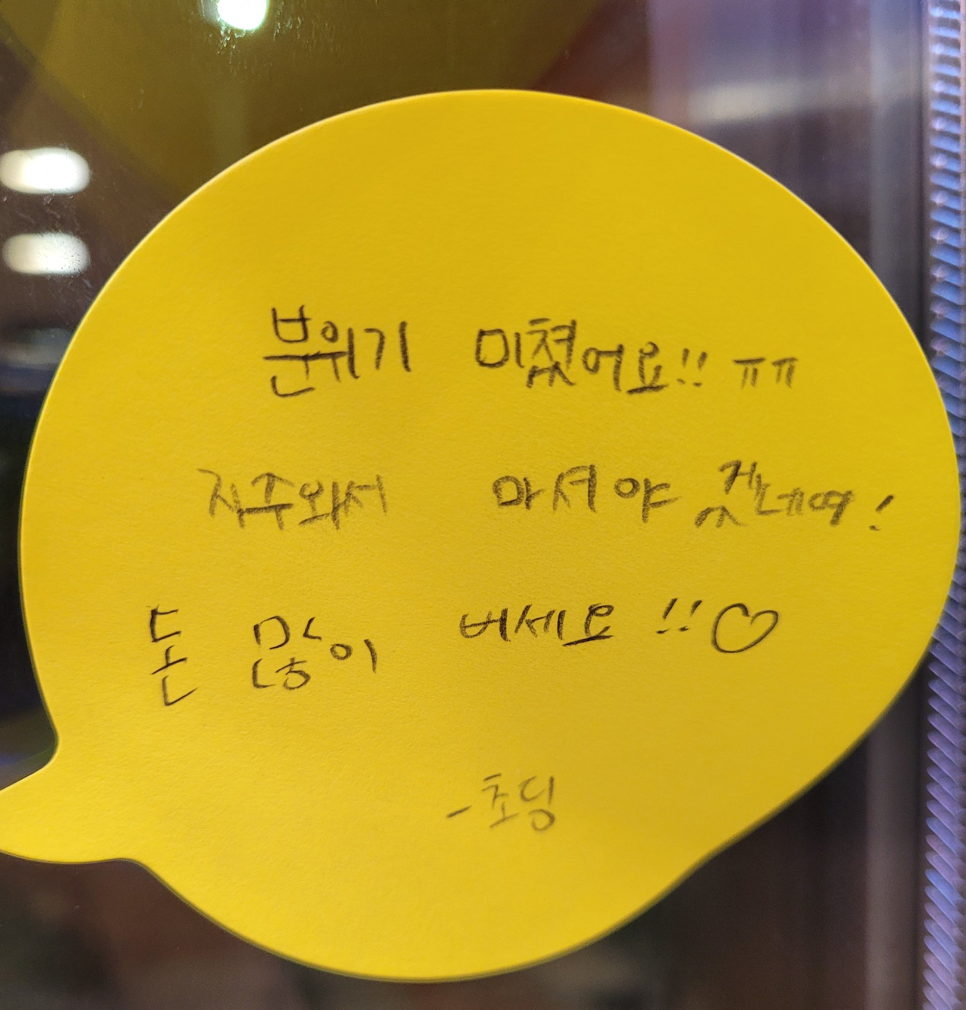 분위기 미쳤어요!! ㅠㅠ
자주와서 마셔야 겠네여!
돈 많이 버세요!!♡
-초딩